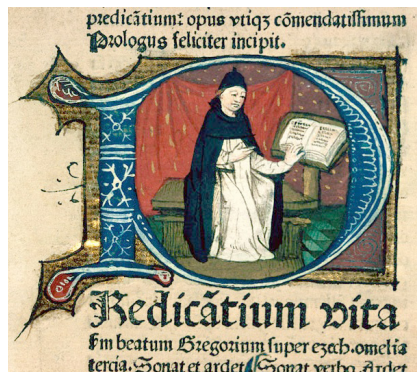 predicātium: opus vtiqz cōmendatissimum
Prologus feliciter incipit.
PRedicātium vita
fm beatum Gregorium super ezech. omelia
tercia. Sonat et ardet. Sonat verbo. Ardet